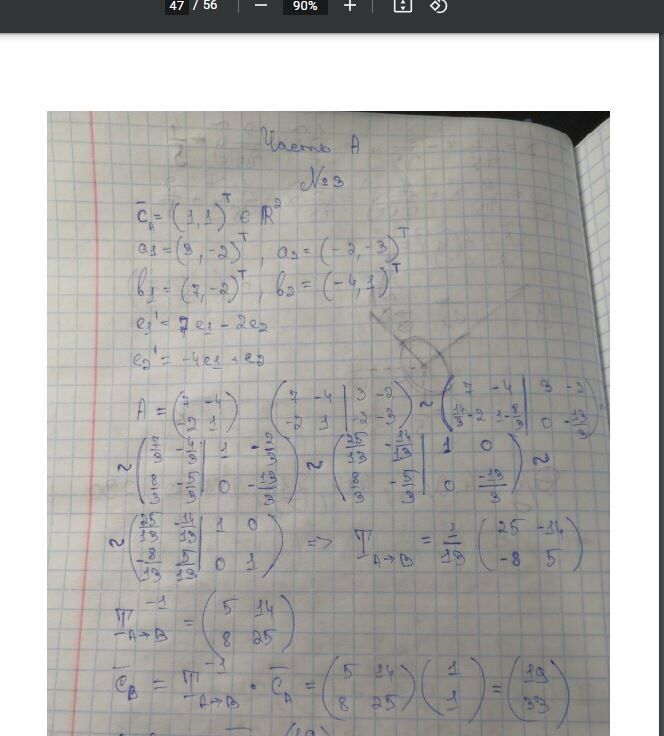 47 / 56 — 90% +
Часть А
№3
c̄_A = (1, 1)^T ∈ ℝ^2
a1 = (3, -2)^T, a2 = (-2, -3)^T
b1 = (7, -2)^T, b2 = (-4, 1)^T
e1' = 7e1 - 2e2
e2' = -4e1 + e2
A = (7 -4; -2 1) (7 -4 | 3 -2; -2 1 | -2 -3) ~ (7 -4 | 3 -2; 14/3 -2 1 - 8/3 | 0 -13/3) ~
~ (7/3 -4/3 | 1 -2/3; 8/3 -5/3 | 0 -13/3) ~ (25/13 -14/13 | 1 0; 8/3 -5/3 | 0 -13/3) ~
~ (25/13 -14/13 | 1 0; -8/13 5/13 | 0 1) => T_A→B = 1/13 (25 -14; -8 5)
T^-1_A→B = (5 14; 8 25)
c̄_B = T^-1_A→B · c̄_A = (5 14; 8 25) (1; 1) = (19; 33)